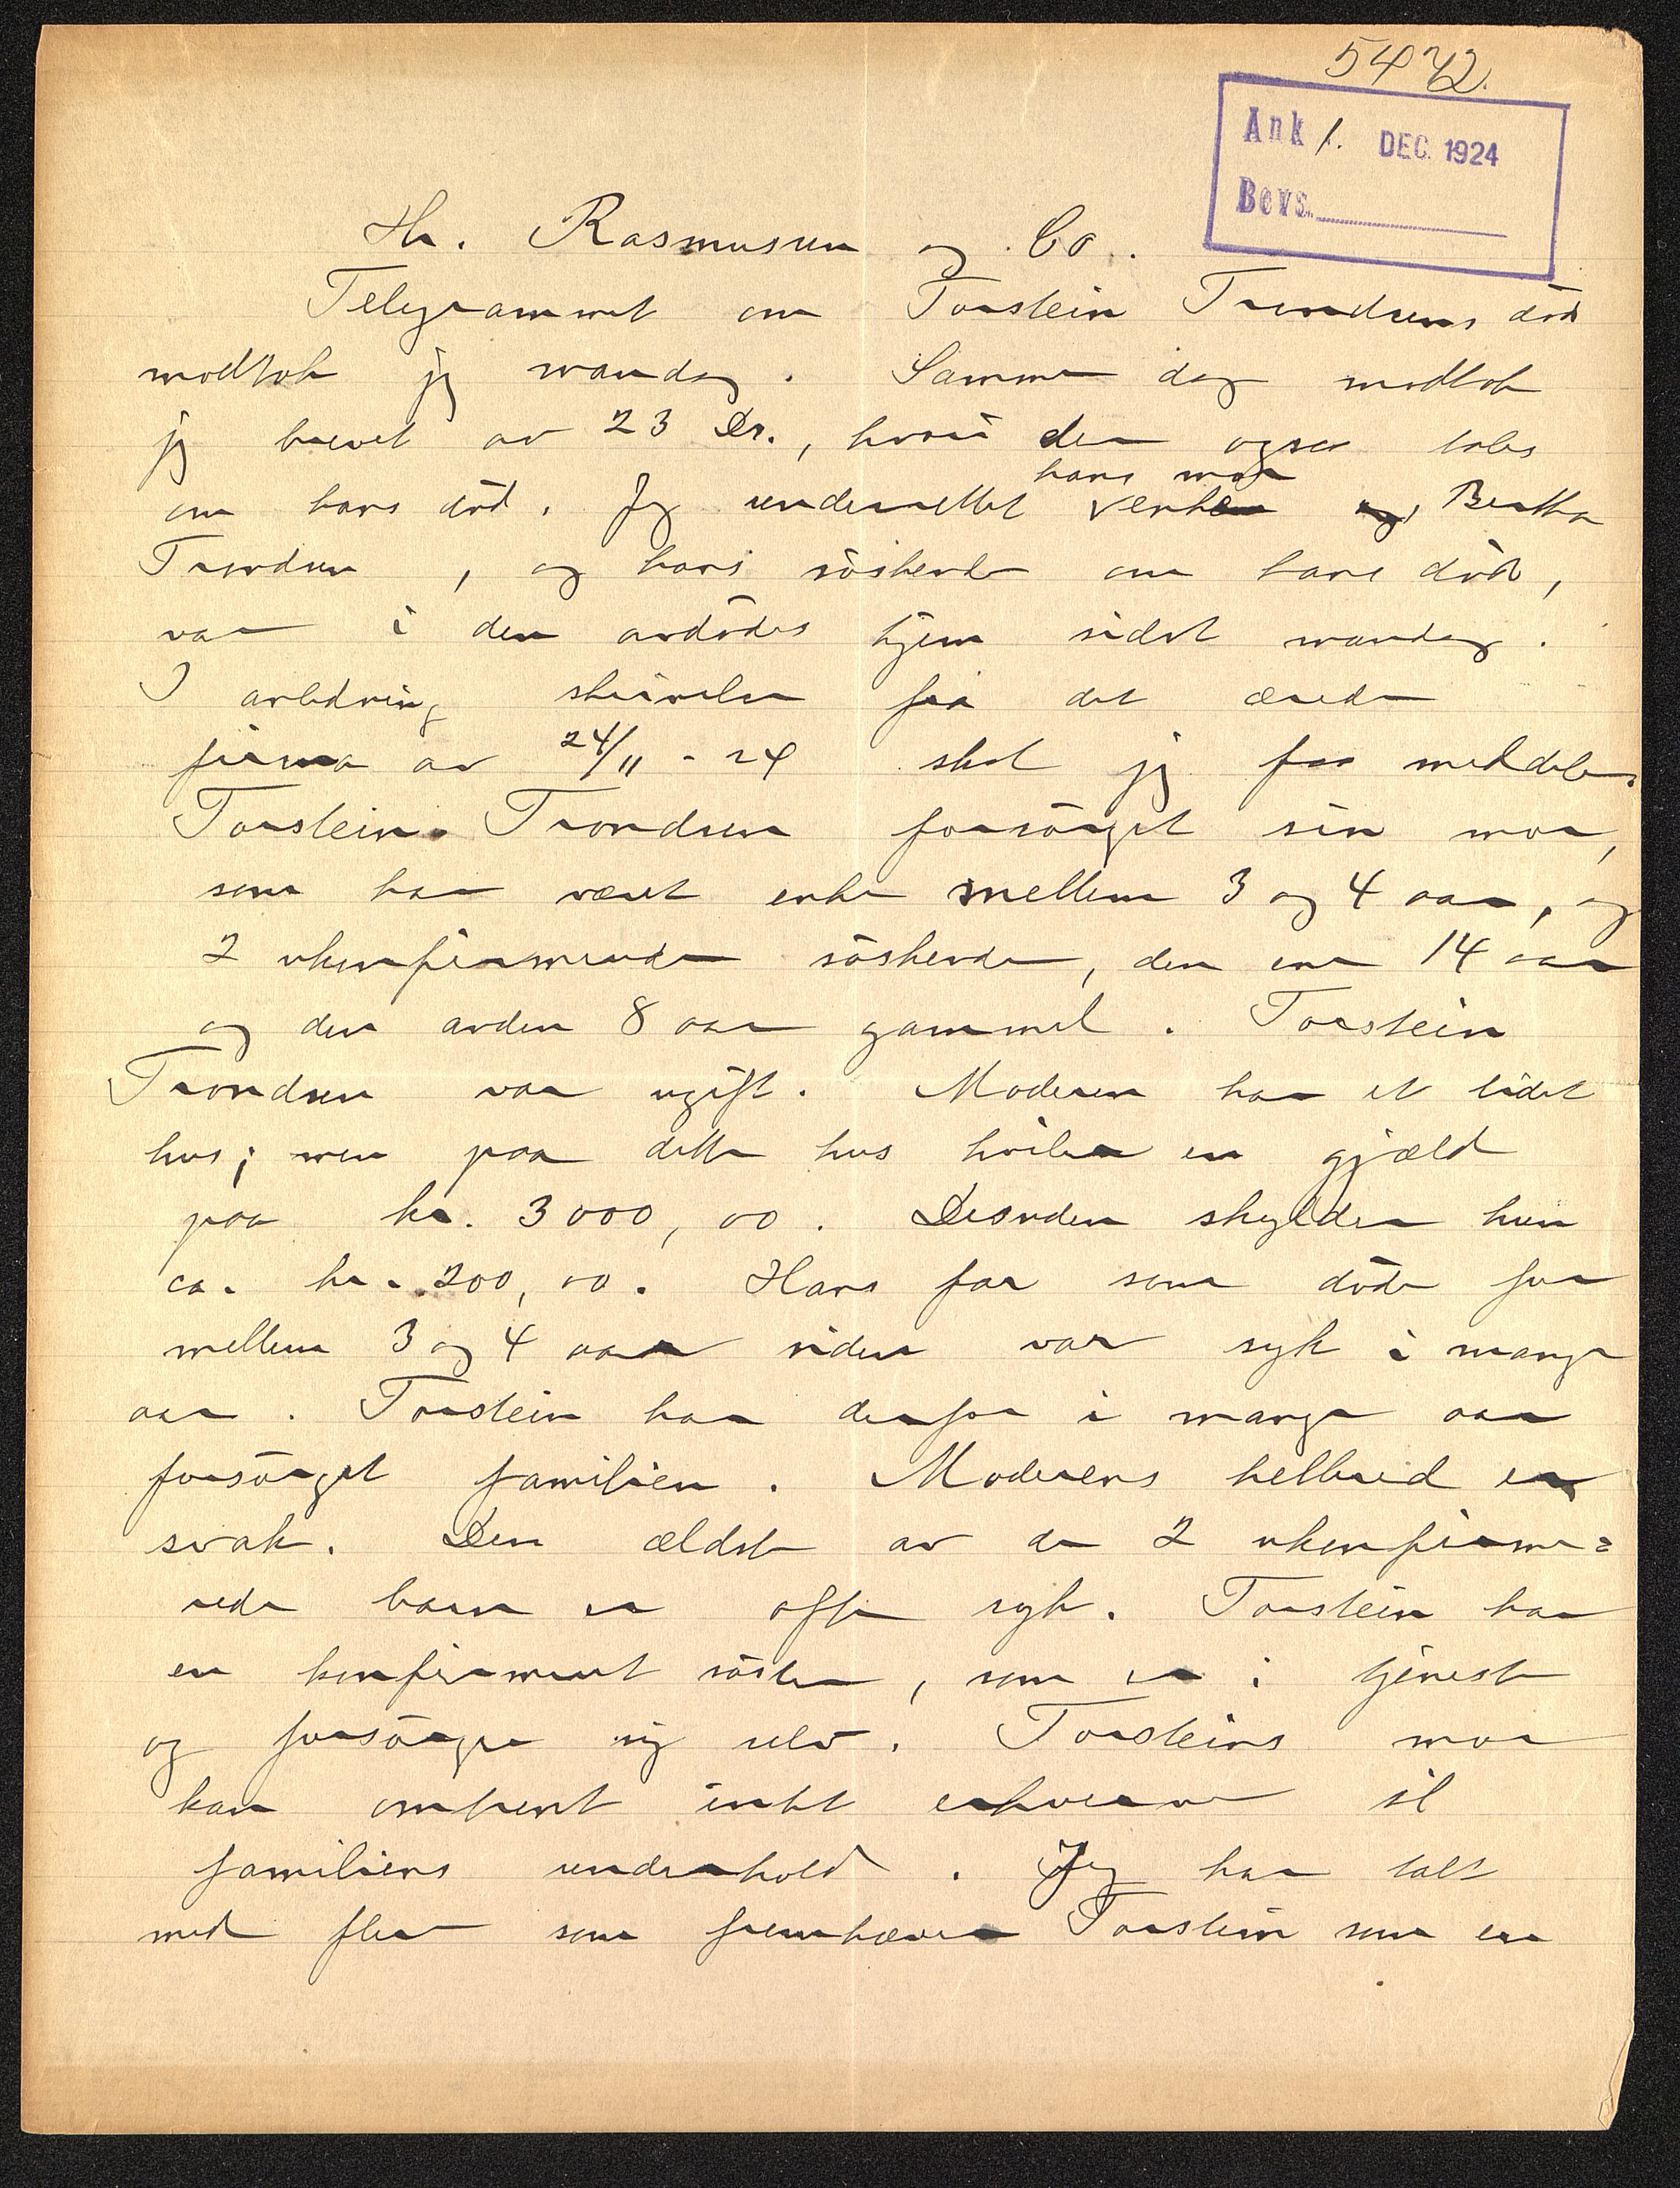 5472.
Ank 1. DEC. 1924
Besv.
Hr. Rasmussen og Co.
Telegrammet om Torstein Trondsens död
modtok jeg mandag. Samme dag modtok
jeg brevet av 23 Ds., hvori der ogsaa tales
hans mor
om hans död. Jeg underrettet enken og, Bertha
Trondsen, og hans söskende om hans död,
var i den avdödes hjem sidst mandag.
I anledning skrivelse fra det ærede
firma av 24/11 - 24 skal jeg faa meddele:
Torstein Trondsen forsörget sin mor,
som har været enke mellem 3 og 4 aar, og
2 ukonfirmerede söskende, den ene 14 aar
og den anden 8 aar gammel. Torstein
Trondsen var ugift. Moderen har et lidet
hus; men paa dette hus hviler en gjæld
paa kr. 3000,00. Desuden skylder hun
ca. kr. 200,00. Hans far som döde for
mellem 3 og 4 aar siden var syk i mange
aar. Torstein har derfor i mange aar
forsörget familien. Moderens helbred er
svak. Den ældste av de 2 ukonfirme=
rede barn er ofte syk. Torstein har
en konfirmert söster, som er i tjeneste
og forsörger sig selv. Torsteins mor
kan omtrent intet erhverve til
familiens underhold. Jeg har talt
med flere som fremhæver Torstein som en